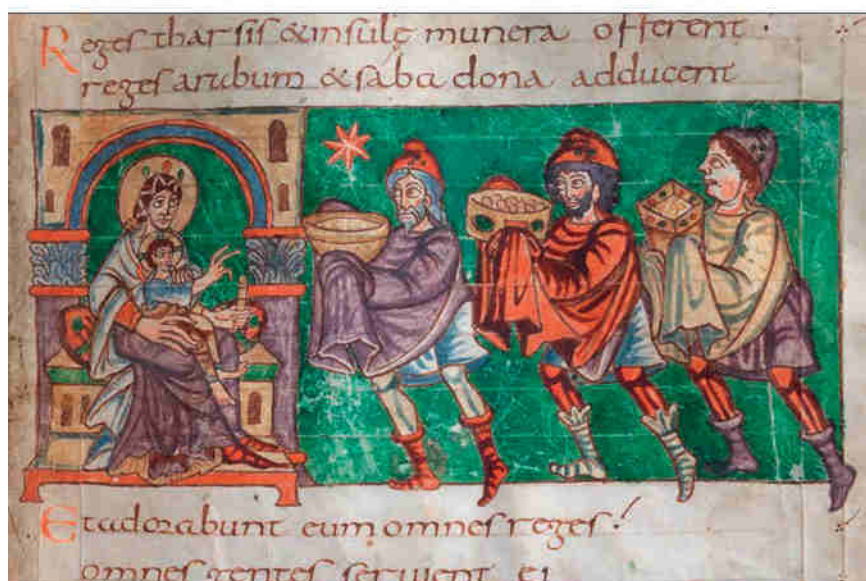 Reges tharsis &insulę munera offerent·
reges arabum &saba dona adducent
Etadorabunt eum omnes reges!
omnes gentes servient ei